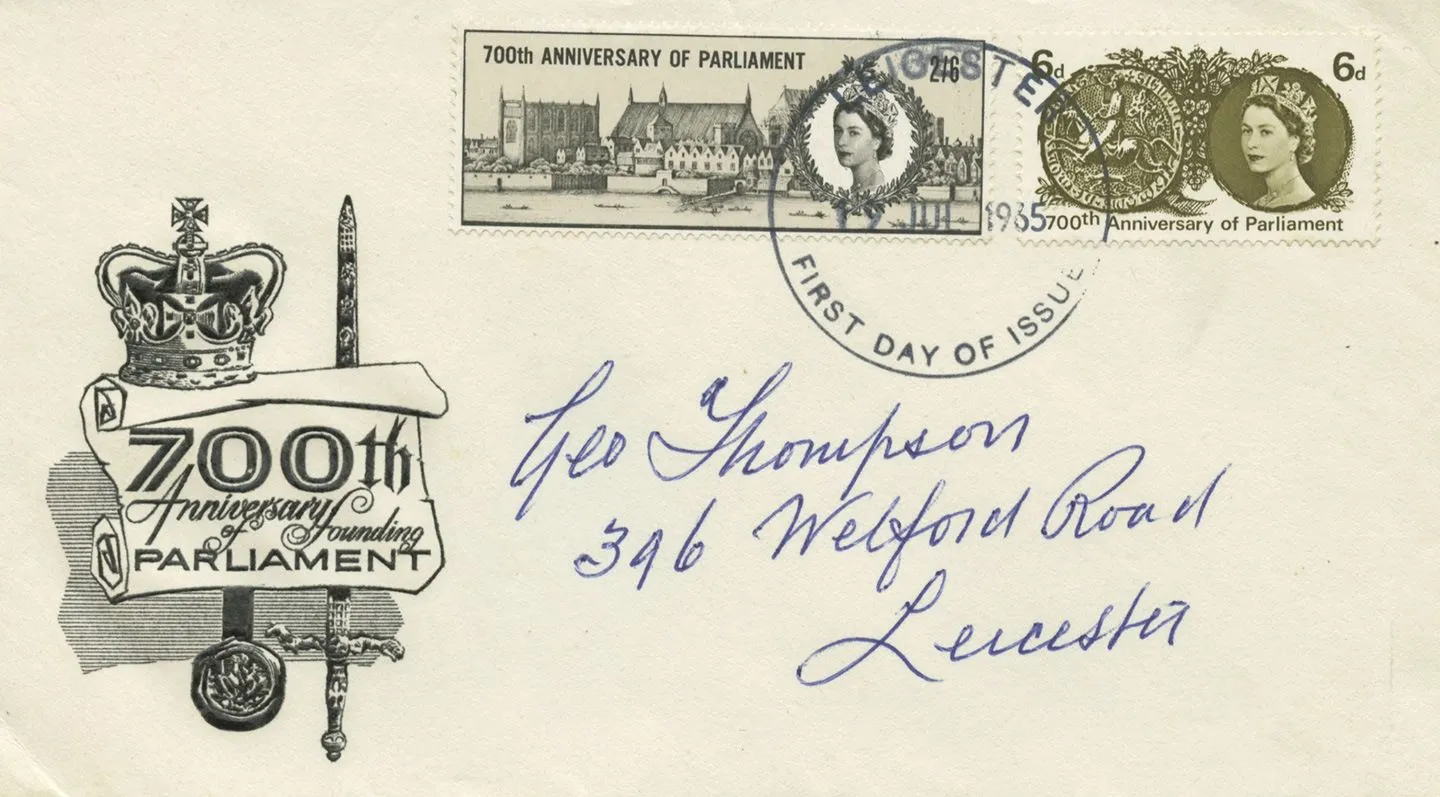 700th ANNIVERSARY OF PARLIAMENT
2/6
6d
6d
700th Anniversary of Parliament
LEICESTER
19 JUL 1965
FIRST DAY OF ISSUE
700th
Anniversary
of Founding
PARLIAMENT
Geo Thompson
396 Welford Road
Leicester